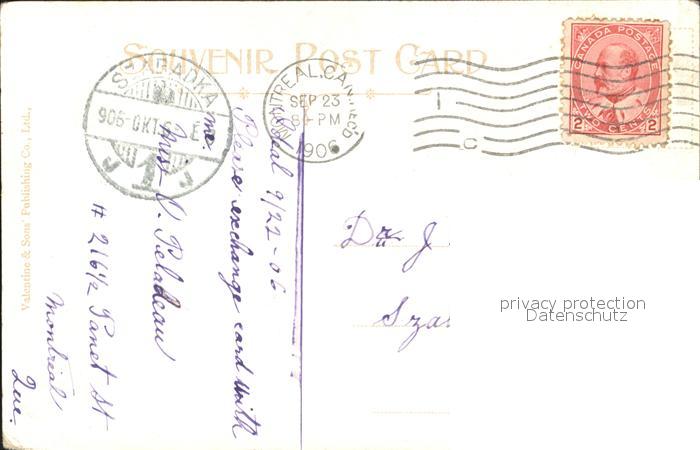 SOUVENIR POST CARD
SZABADKA
906 OKT
1
J J
MONTREAL, CAN
SEP 23
8 - PM
1906
I
C
CANADA POSTAGE
2 TWO CENTS 2
Dr. J
Sza
privacy protection
Datenschutz
9/22-06
Please exchange card with me.
Miss O. Peladeau
# 216½ Panet St
Montreal
Que.
Valentine & Sons' Publishing Co., Ltd.,